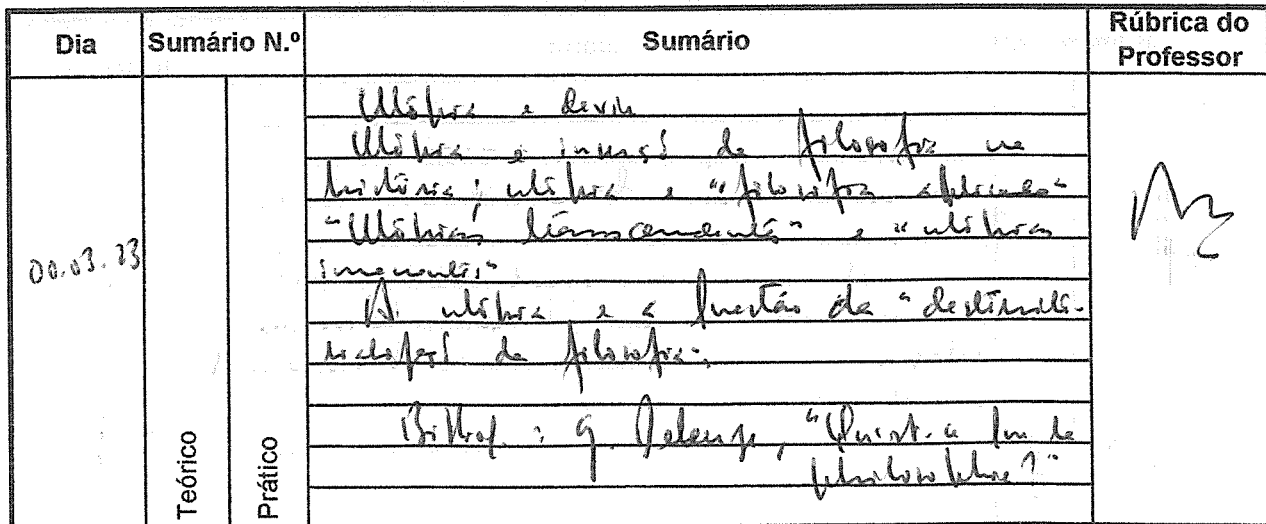 Dia
Sumário N.º
Sumário
Rúbrica do
Professor
Utopia e devir
Utopia e imersão da filosofia na
história; utopia e "filosofia aplicada"
"Utopias transcendentes" e "utopias
imanentes"
00.03.23
A utopia e a questão da "desterritorialização
da filosofia".
Bibliof. : G. Deleuze, "Qu'est-ce que la
philosophie?"
Teórico
Prático